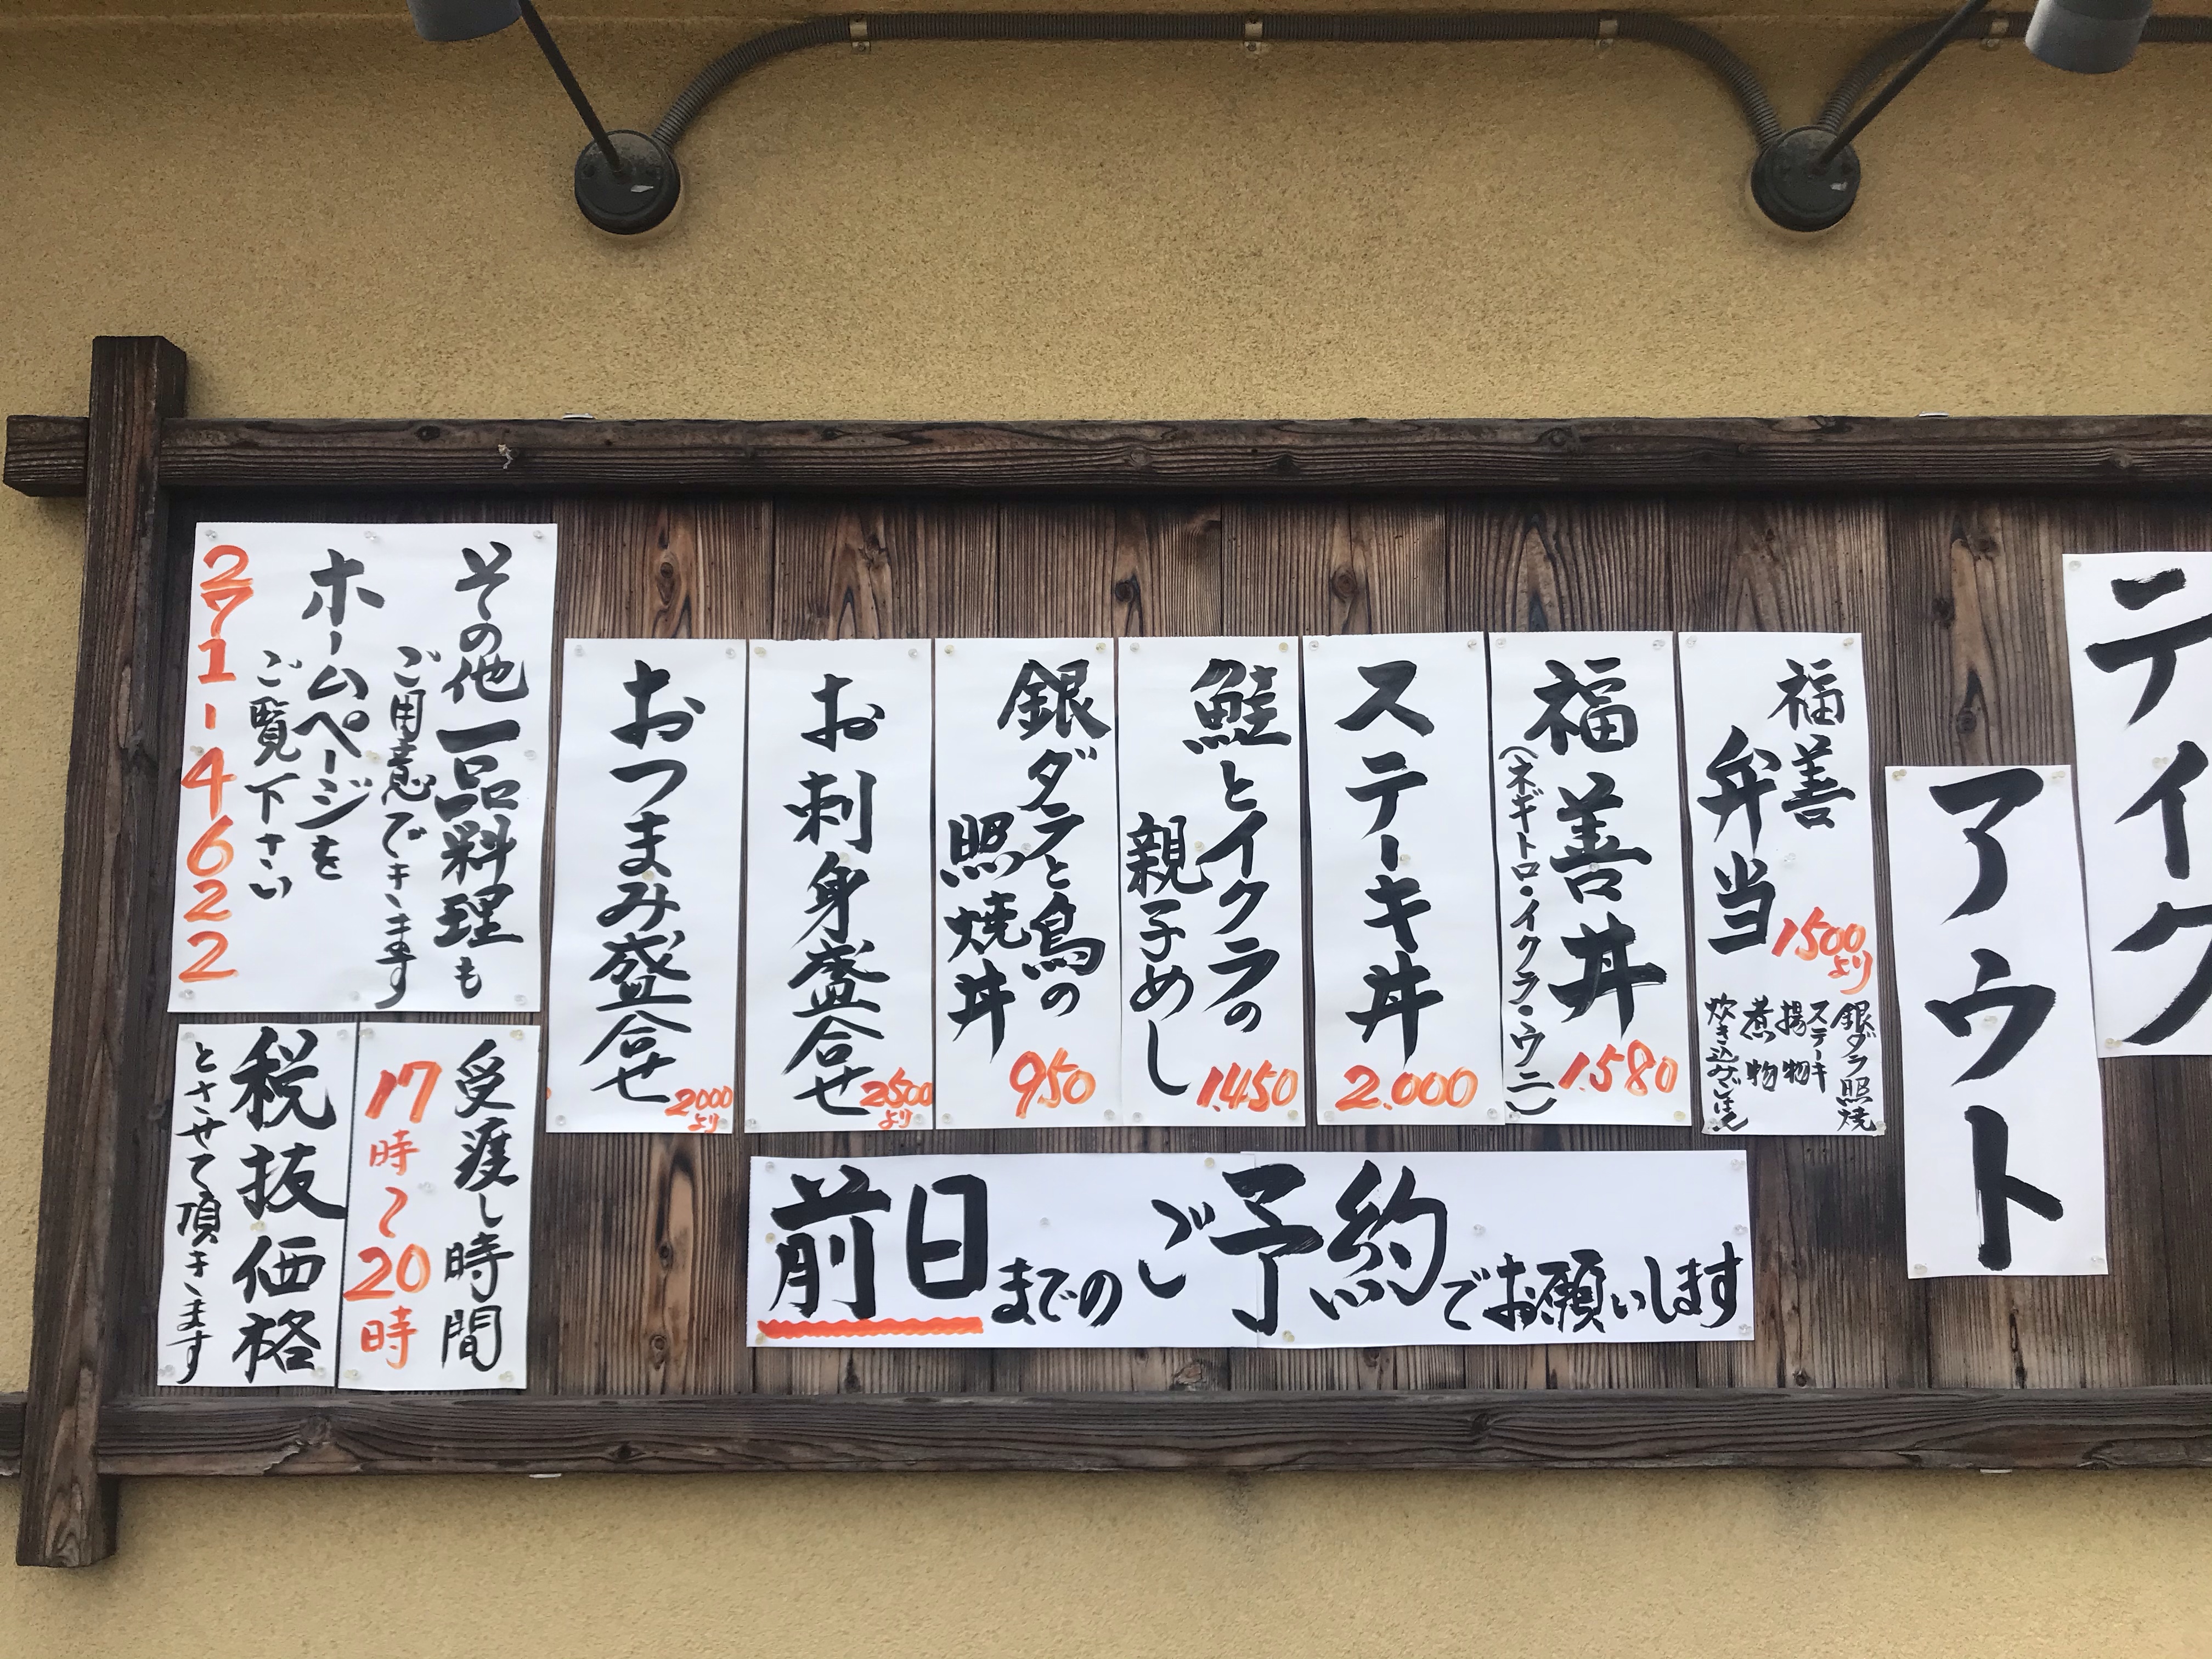 テイク
アウト
福善
弁当
1500
より
銀ダラ照焼
ステーキ
揚物
煮物
炊き込みごはん
福善丼
(ネギトロ・イクラ・ウニ)
1.580
ステーキ丼
2.000
鮭とイクラの
親子めし
1.450
銀ダラと鳥の
照焼丼
950
お刺身盛合せ
2500
より
おつまみ盛合せ
2000
より
前日までのご予約でお願いします
その他一品料理も
ご用意できます
ホームページを
ご覧下さい
271-4622
受渡し時間
17時~20時
税抜価格
とさせて頂きます